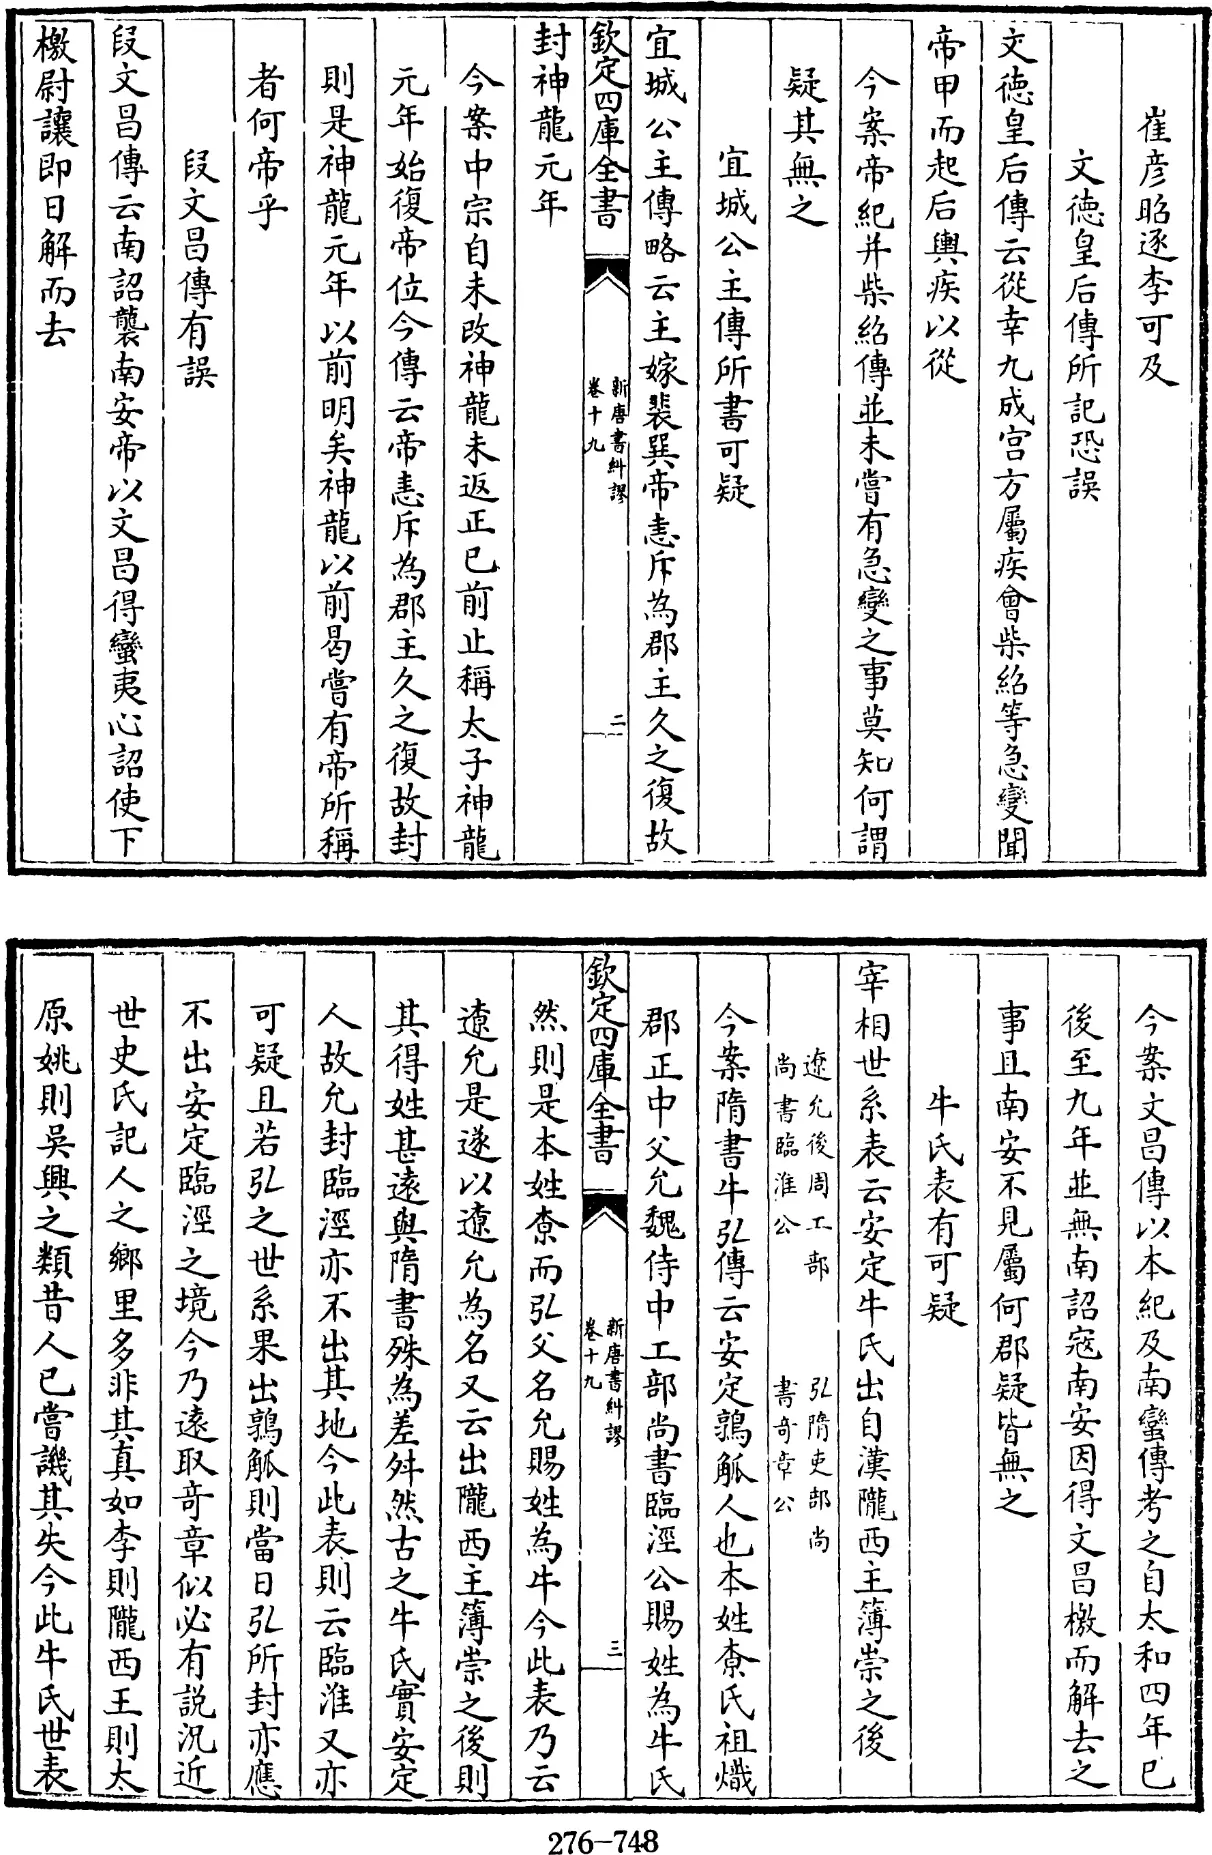 崔彦昭逐李可及
文徳皇后傳所記恐誤
文徳皇后傳云從幸九成宫方屬疾會柴紹等急變聞
帝甲而起后輿疾以從
今案帝紀并柴紹傳並未嘗有急變之事莫知何謂
疑其無之
宜城公主傳所書可疑
宜城公主傳略云主嫁裴巽帝恚斥為郡主久之復故
欽定四庫全書
新唐書糾謬
卷十九
二
封神龍元年
今案中宗自未改神龍未返正已前止稱太子神龍
元年始復帝位今傳云帝恚斥為郡主久之復故封
則是神龍元年以前明矣神龍以前曷嘗有帝所稱
者何帝乎
段文昌傳有誤
段文昌傳云南詔襲南安帝以文昌得蠻夷心詔使下
檄尉讓即日解而去
今案文昌傳以本紀及南蠻傳考之自太和四年已
後至九年並無南詔寇南安因得文昌檄而解去之
事且南安不見屬何郡疑皆無之
牛氏表有可疑
宰相世系表云安定牛氏出自漢隴西主簿崇之後
遼允後周工部
尚書臨淮公
弘隋吏部尚
書奇章公
今案隋書牛弘傳云安定鶉觚人也本姓尞氏祖熾
郡正中父允魏侍中工部尚書臨涇公賜姓為牛氏
欽定四庫全書
新唐書糾謬
卷十九
三
然則是本姓尞而弘父名允賜姓為牛今此表乃云
遼允是遂以遼允為名又云出隴西主簿崇之後則
其得姓甚遠與隋書殊為差舛然古之牛氏實安定
人故允封臨涇亦不出其地今此表則云臨淮又亦
可疑且若弘之世系果出鶉觚則當日弘所封亦應
不出安定臨涇之境今乃遠取奇章似必有説況近
世史氏記人之鄉里多非其真如李則隴西王則太
原姚則吳興之類昔人已嘗譏其失今此牛氏世表
276-748